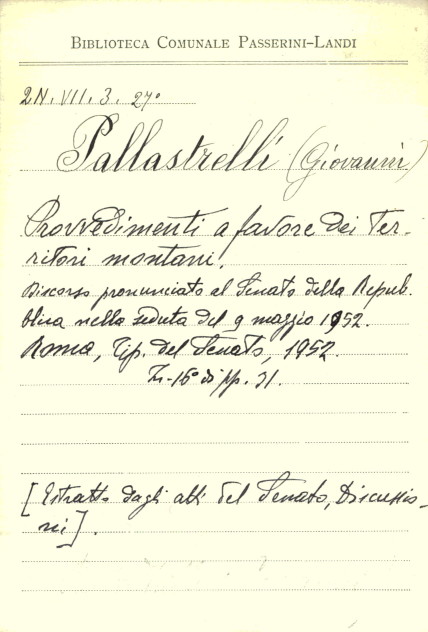 BIBLIOTECA COMUNALE PASSERINI-LANDI
2N. VII. 3. 27°
Pallastrelli (Giovanni)
Provvedimenti a favore dei Ter-
ritori montani.
Discorso pronunciato al Senato della Repub-
blica nella seduta del 9 maggio 1952.
Roma, Tip. del Senato, 1952.
In-16° di pp. 31.
[Estratto dagli atti del Senato, Discussio-
ni].